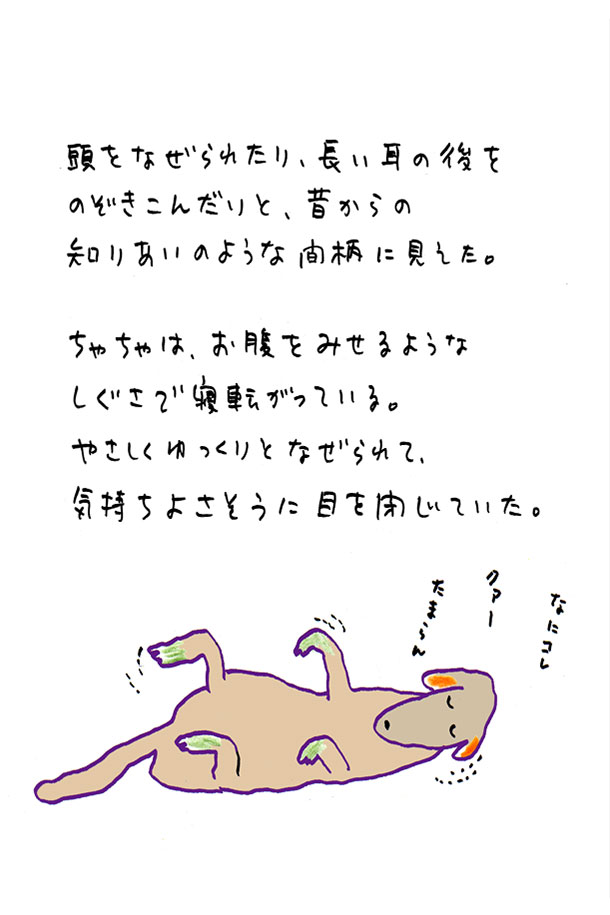 頭をなぜられたり、長い耳の後を
のぞきこんだりと、昔からの
知りあいのような間柄に見えた。
ちゃちゃは、お腹をみせるような
しぐさで寝転がっている。
やさしくゆっくりとなぜられて、
気持ちよさそうに目を閉じていた。
なにコレ
クァー
たまらん